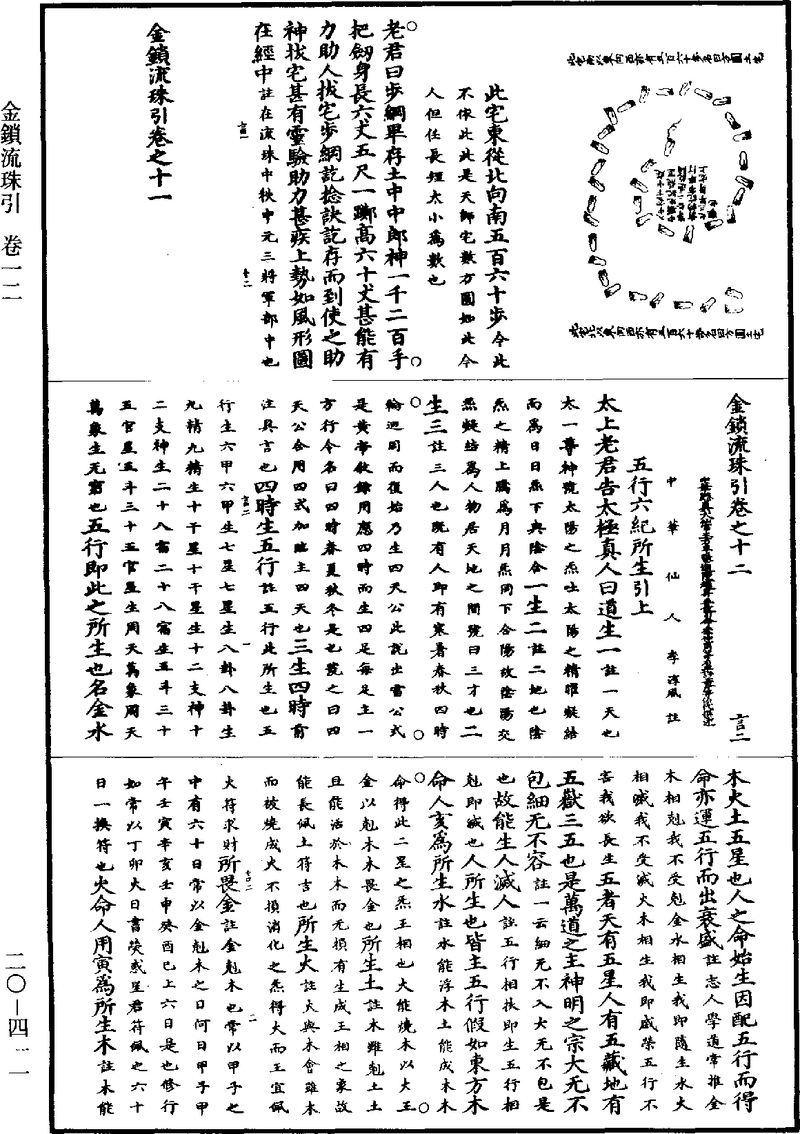 金鎖流珠引 卷一二
二〇—四一一
此宅東從北向南五百六十步今此
不依此此是天師宅數方圓如此今
人但任長短大小為數也
老君曰步綱畢存土中中郎神一千二百手
把劒身長六丈五尺一躑高六十丈甚能有
力助人拔宅步綱訖捻訣訖存而到使之助
神拔宅甚有靈驗助力甚疾上勢如風形圖
在經中註在流珠中秩中元三將軍部中也
金鎖流珠引卷之十一
金鎖流珠引卷之十二
言二
中華仙人李淳風註
五行六紀所生引上
太上老君告太極真人曰道生一註一天也
太一尊神號太陽之炁吐太陽之精曜凝結
而為日日炁下與陰合一生二註二地也陰
炁之精上騰為月月炁同下合陽故陰陽交
炁凝結為人物居天地之間號曰三才也二
生三註三人也既有人即有寒暑春秋四時
輪迴周而復始乃生四天公此說出雷公式
是黃帝敘錄用應四時而生四足每足主一
方行今名曰四時春夏秋冬是也號之曰四
天公合用四式加臨主四天也三生四時前
注具言也四時生五行註五行此所生也五
行生六甲六甲生七星七星生八卦八卦生
九精九精生十干星十干星生十二支神十
二支神生二十八宿二十八宿生五斗三十
五官星五斗三十五官星生周天萬象周天
萬象生无窮也五行即此之所生也名金水
木火土五星也人之命始生因配五行而得
命亦運五行而出衰盛註志人學道常推全
木相剋我不受剋金水相生我即隨生水火
相滅我不受滅火木相生我即盛榮五行不
害我欲長生五者天有五星人有五藏地有
五嶽三五也是萬道之主神明之宗大无不
包細无不容註一云細无不入大无不包是
也故能生人滅人註五行相扶即生五行相
剋即滅也人所生也皆主五行假如東方木
命人亥為所生水註水能浮木土能成木木
命得此二星之炁王相也火能燒木以大王
金以剋木木畏金也所生土註木雖剋土土
且能活於木木而无損有生成王相之象故
能長佩土符吉也所生火註火與木會雖木
而被燒成火不損消化之炁得火而王宜佩
火符求財所畏金註金剋木也常以甲子之
中有六十日常以金剋木之日何日甲子甲
午壬寅辛亥壬申癸酉已上六日是也修行
如常以丁卯火日書熒惑星君符佩之六十
日一換符也火命人用寅為所生木註木能